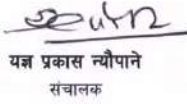 यज्ञ प्रकास न्यौपाने
संचालक